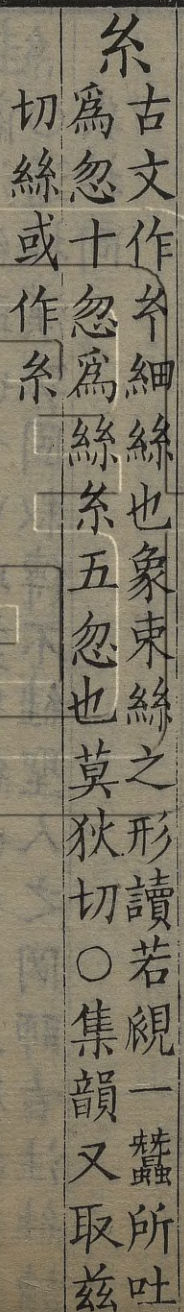 糸
古文作𢆯細絲也象束絲之形讀若覛一蠶所吐
爲忽十忽爲絲糸五忽也莫狄切○集韻又取兹
切絲或作糸